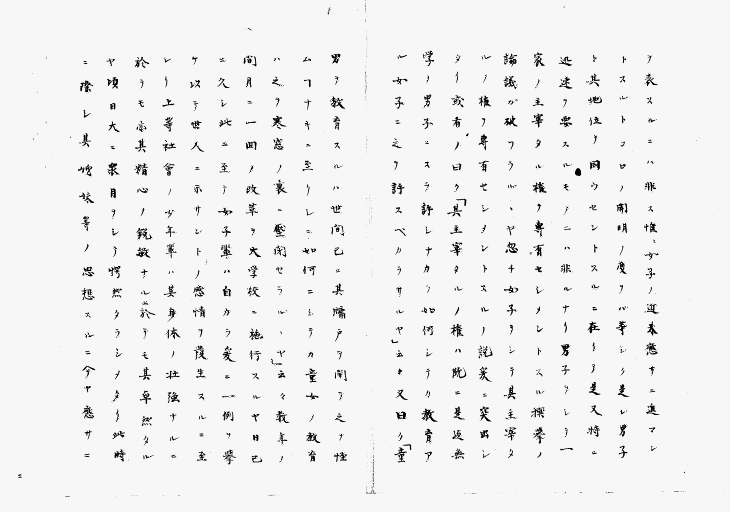 ヲ表スルニハ非ス惟ニ女子ノ近来応サニ進マン
トスルトコロノ開明ノ度ヲバ等シク是レ男子
ト其地位ヲ同ウセントスルニ在リ是又特ニ
迅速ヲ要スルモノニハ非ルナリ男子ヲシテ一
家ノ主宰タル権ヲ専有セシメントスル撰挙ノ
論議が破ヲラルヽヤ忽チ女子ヲシテ其主宰タ
ルノ権ヲ専有セシメントスルノ説爰ニ突出シ
タリ或者ノ曰ク「其主宰タルノ権ハ既ニ是迄無
学ノ男子ニスラ許シナカラ如何シテカ教育ア
ル女子ニ之ヲ許スベカラサルヤ」云々又曰ク「童
男ヲ教育スルハ世間已ニ其牖戸ヲ開テ之ヲ怪
ムコナキニ至リシニ如何ニシテカ童女ノ教育
ハ之ヲ寒窓ノ裏ニ壓閉セラルヽヤ」云々数年ノ
間月ニ一回ノ改革ヲ大学校ニ施行スルヤ日已
ニ久シ此ニ至テ女子輩ハ自カラ爰ニ一例ヲ挙
ケ以テ世人ニ示サントノ感情ヲ発生スルニ至
レリ上等社會ノ少年輩ハ其身体ノ壮強ナルニ
於テモ亦其精心ノ鋭敏ナルニ於テモ其卓然タル
ヤ頃日大ニ衆目ヲシテ愕然タラシメタリ此時
ニ際シ其姉妹等ノ思想スルニ今ヤ應サニ